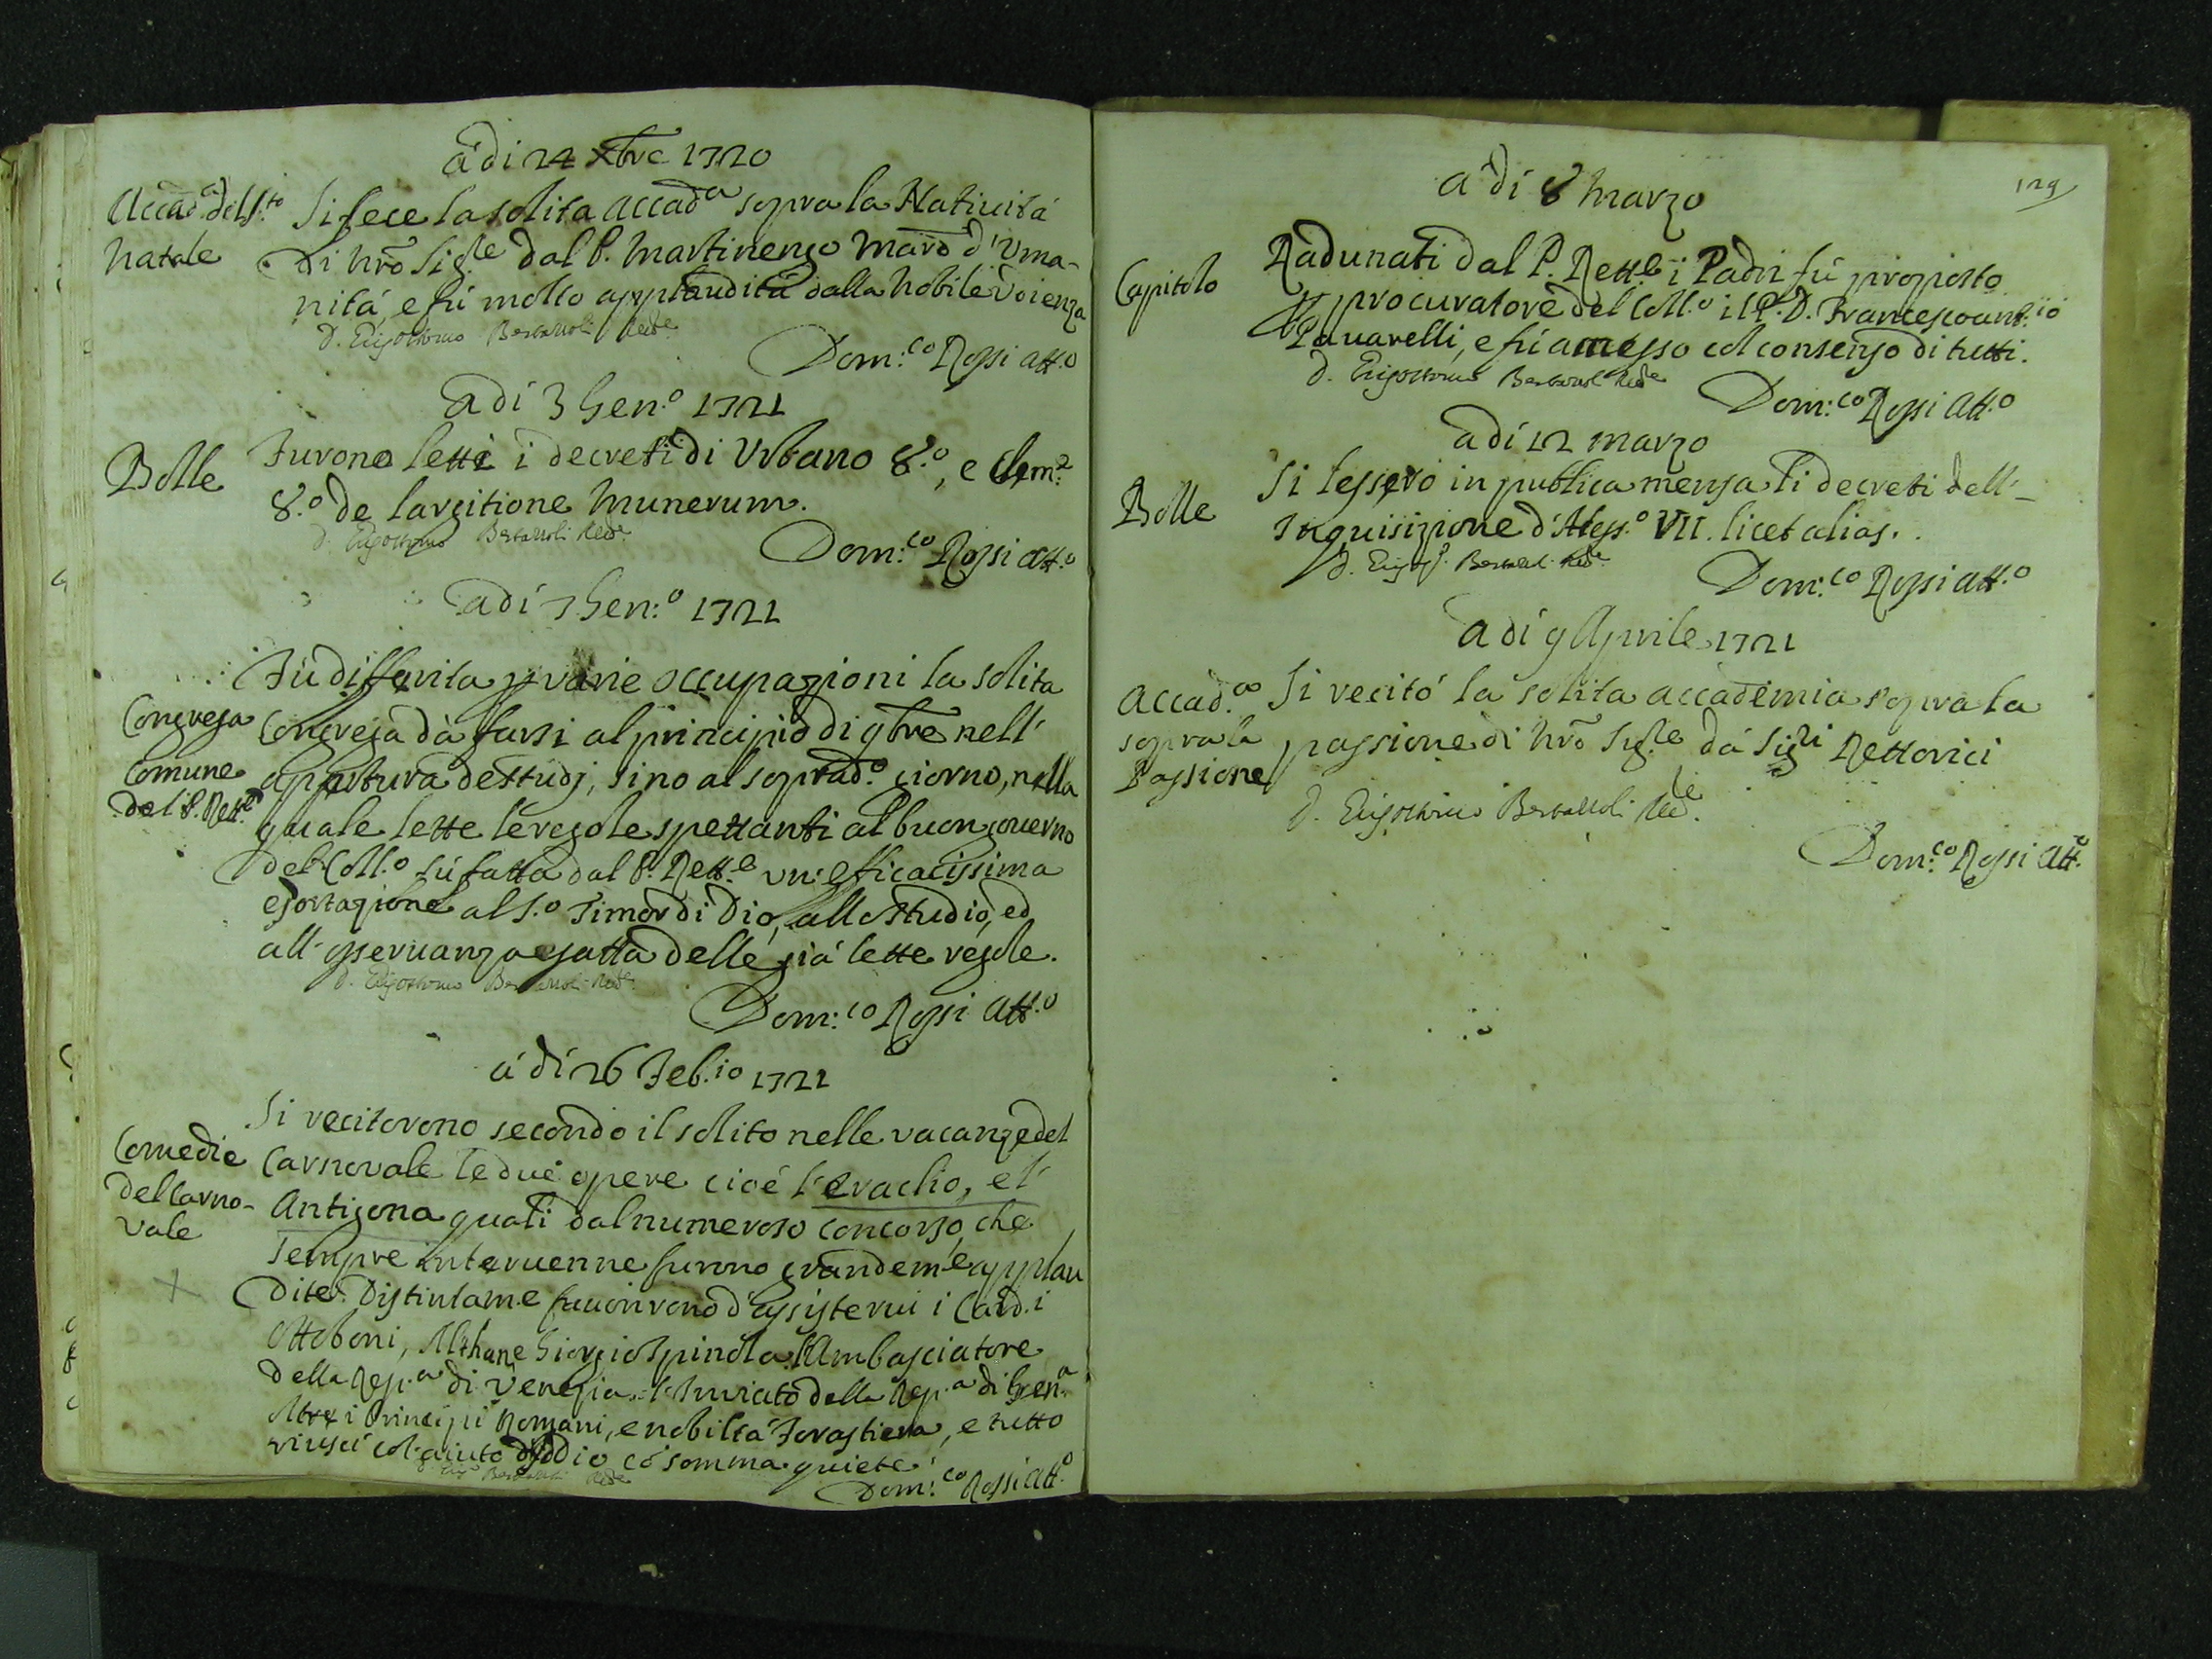 á di 24 Xbre 1720
Accad.a del S.to
Natale
Si fece la solita accad.a sopra la Natiuitá
di Nrõ Sig.re dal P. Martinengo Marõ d'Vma-
nitá, e fú molto applaudita dalla Nobile Vdienza
Dom:co Rossi Att.o
a dí 3 Gen.o 1721
Bolle
Furono letti i decreti di Vrbano 8.o, e Clem.e
8.o de largitione Munerum.
Dom:co Rossi Att.o
a dí 7 Gen:o 1721
Congrega
Comune
del P. Rett.e
Fú differita p varie occupazioni la solita
Congrega dà farsi al principio di 9bre nell'
apertura de studj, sino al soprad.o giorno, nella
quale lette le regole spettanti al buon gouerno
del Coll.o fú fatta dal P. Rett.e un'efficacissima
esortazione al S.o Timor di Dio, allo studio, ed
all'osseruanza esatta delle giá lette regole.
Dom:co Rossi Att.o
á dí 26 Feb.io 1721
Comedie
del Carno-
vale
Si recitorono secondo il solito nelle vacanze del
Carnovale le due opere cioé l'Eraclio, e l'
Antigona quali dal numeroso concorso, che
sempre interuenne furono grandem.e applau
dite. Distintam.e fauorirono d'assisterui i Card.i
Ottoboni, Althane Giorgio Spinola l'Ambasciatore
della Rep.a di Venezia, l'Inuiato della Rep.a di Gen.a
oltre i Principi Romani, e nobiltá Forastiera, e tutto
riuscí col aiuto d'Iddio có somma quiete.
Dom:co Rossi Att.o
129
a dí 8 Marzo
Capitolo
Radunati dal P. Rett.e i Padri fú proposto
p procuratore del Coll.o il P. D. Francescoant.io
Pauarelli, e fú amesso col consenso di tutti.
Dom:co Rossi Att.o
a dí 12 marzo
Bolle
Si lessero in publica mensa li decreti dell'-
Inquisizione d'Aless.o VII. licet alias.
Dom:co Rossi Att.o
a dí 9 Aprile 1721
Accad.a
sopra la
Passione
Si recitó la solita accademia sopra la
passione di Nrõ Sig.re dá Sig.ri Rettorici
Dom:co Rossi Att.o